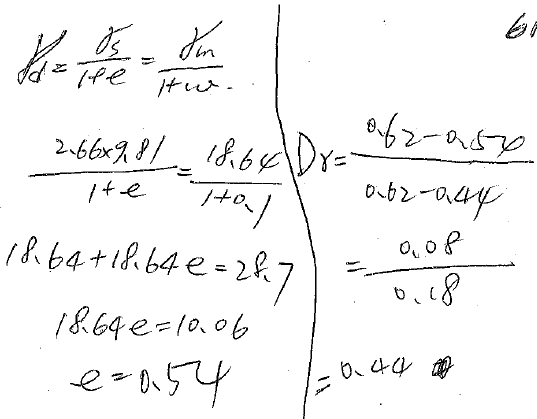 γd = γs/1+e = γm/1+w.
2.66×9.81/1+e = 18.64/1+0.1
18.64+18.64e=28.7
18.64e=10.06
e=0.54
Dr = 0.62-0.54/0.62-0.44
= 0.08/0.18
= 0.44